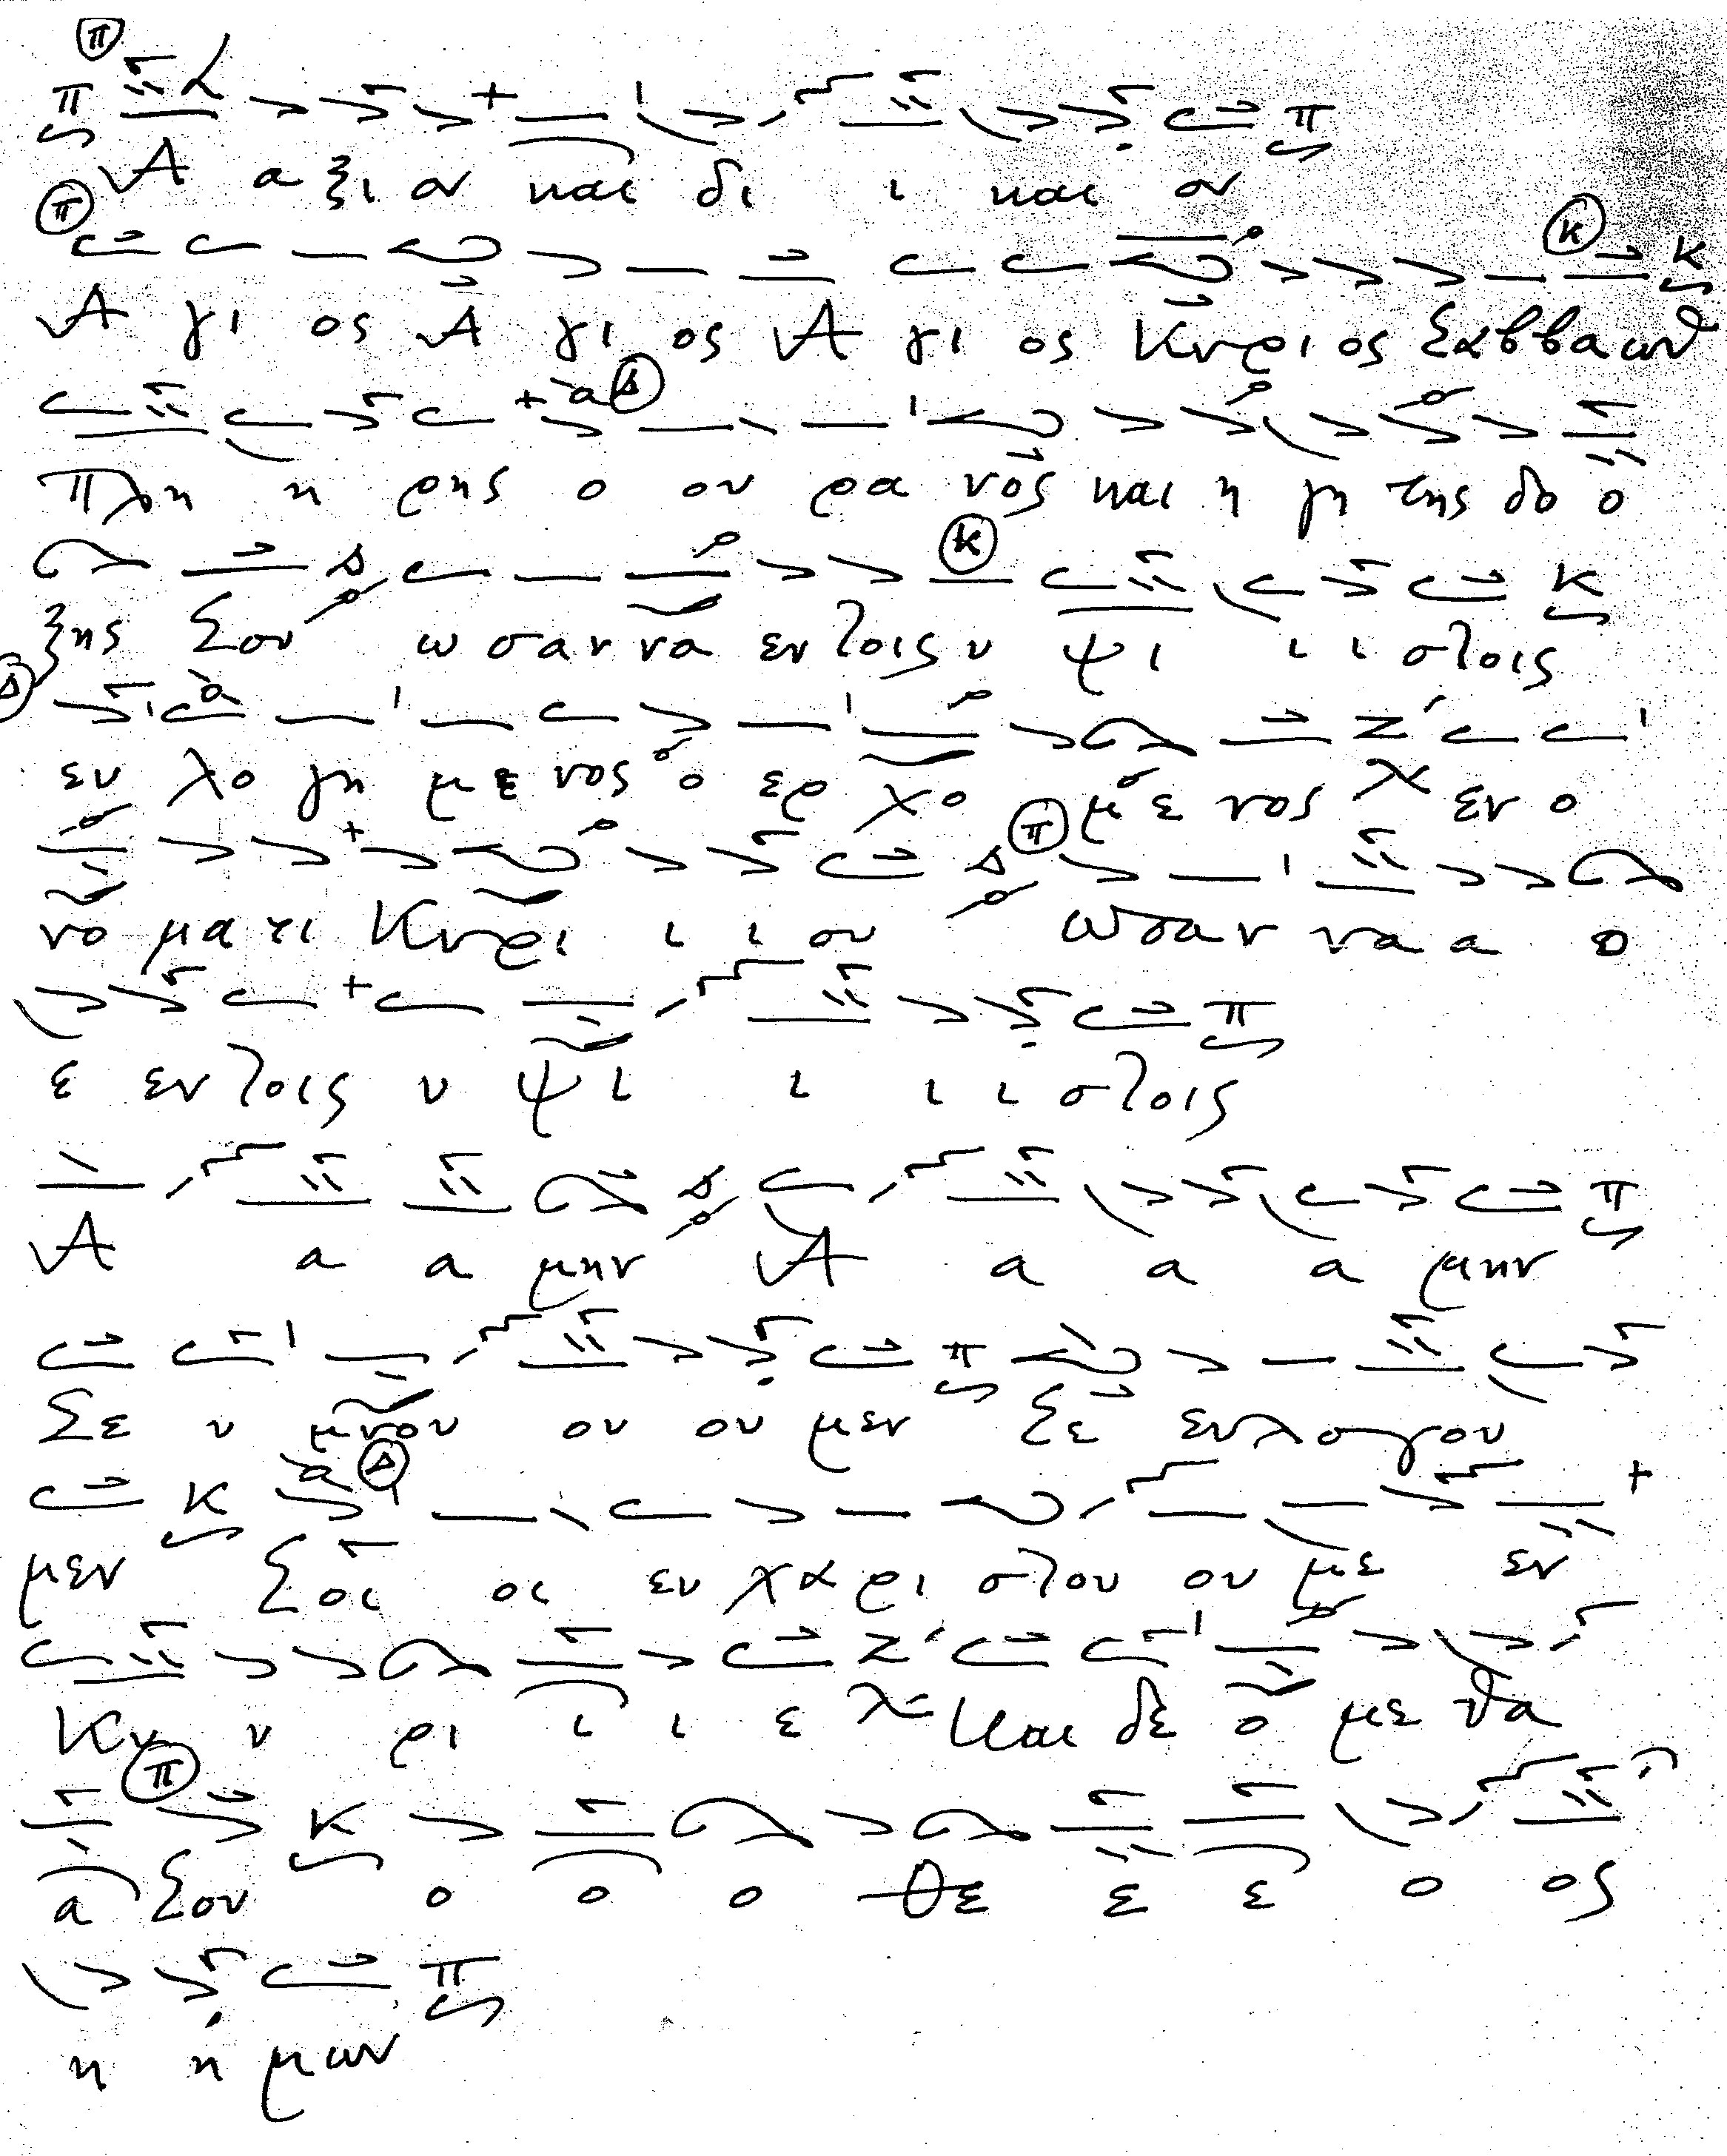 Α α ξι ον και δι ι και ον
Α γι ος Α γι ος Α γι ος Κυριος Σαββαωθ
πλη η ρης ο ου ρα νος και η γη της δο ο
ξης Σου ω σαν να εν τοις υ ψι ι ι στοις
ευ λο γη με νος ο ερ χο με νος εν ο
νο μα τι Κυρι ι ι ου ωσαν να α ο
ε εν τοις υ ψι ι ι ι στοις
Α α α μην Α α α α μην
Σε υ μνου ου ου μεν Σε ευλογου
μεν Σοι οι ευ χα ρι στου ου με εν
Κυ υ ρι ι ι ε και δε ο με θα
α Σου ο ο ο Θε ε ε ο ος
η η μων